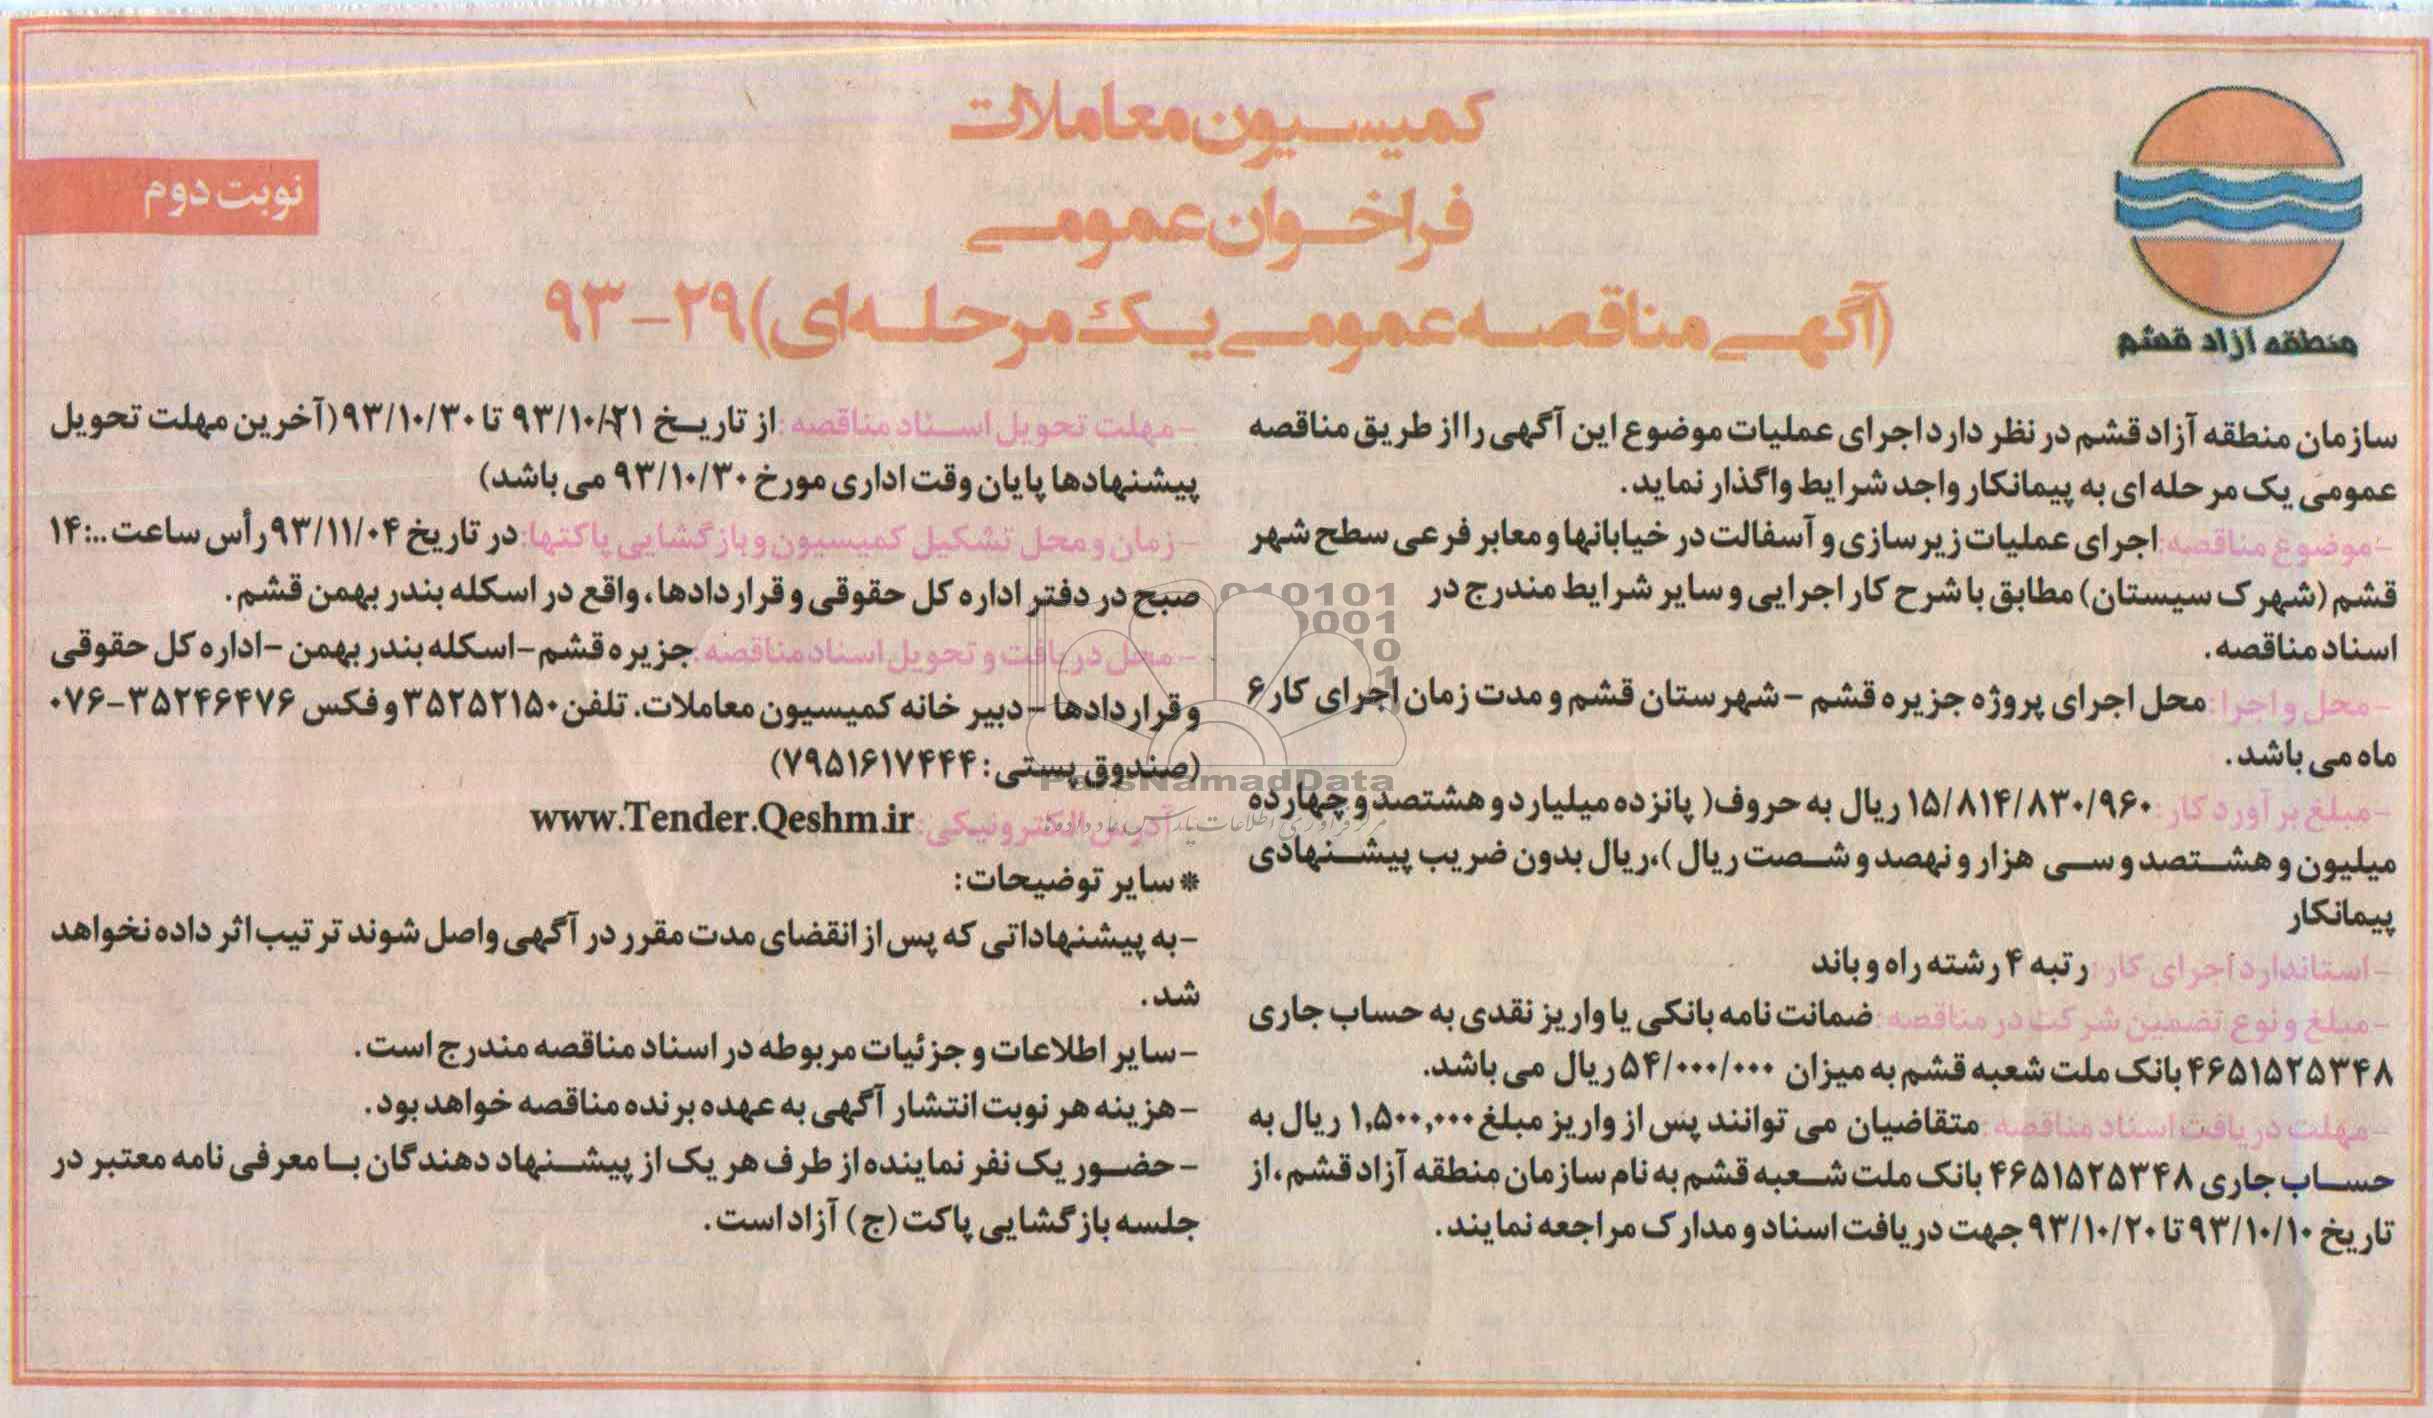 کمیسیون معاملات
فراخوان عمومی
(آگهی مناقصه عمومی یک مرحله‌ای) ۲۹-۹۳
نوبت دوم
منطقه آزاد قشم
سازمان منطقه آزاد قشم در نظر دارد اجرای عملیات موضوع این آگهی را از طریق مناقصه
عمومی یک مرحله ای به پیمانکار واجد شرایط واگذار نماید.
-موضوع مناقصه: اجرای عملیات زیرسازی و آسفالت در خیابانها و معابر فرعی سطح شهر
قشم (شهرک سیستان) مطابق با شرح کار اجرایی و سایر شرایط مندرج در
اسناد مناقصه.
-محل و اجرا: محل اجرای پروژه جزیره قشم - شهرستان قشم و مدت زمان اجرای کار ۶
ماه می باشد.
-مبلغ برآورد کار: ۱۵/۸۱۴/۸۳۰/۹۶۰ ریال به حروف( پانزده میلیارد و هشتصد و چهارده
میلیون و هشتصد و سی هزار و نهصد و شصت ریال )،ریال بدون ضریب پیشنهادی
پیمانکار
-استاندارد اجرای کار: رتبه ۴ رشته راه و باند
-مبلغ و نوع تضمین شرکت در مناقصه: ضمانت نامه بانکی یا واریز نقدی به حساب جاری
۴۶۵۱۵۲۵۳۴۸ بانک ملت شعبه قشم به میزان ۵۴/۰۰۰/۰۰۰ ریال می باشد.
-مهلت دریافت اسناد مناقصه: متقاضیان می توانند پس از واریز مبلغ ۱,۵۰۰,۰۰۰ ریال به
حساب جاری ۴۶۵۱۵۲۵۳۴۸ بانک ملت شعبه قشم به نام سازمان منطقه آزاد قشم، از
تاریخ ۹۳/۱۰/۱۰ تا ۹۳/۱۰/۲۰ جهت دریافت اسناد و مدارک مراجعه نمایند.
-مهلت تحویل اسناد مناقصه: از تاریخ ۹۳/۱۰/۲۱ تا ۹۳/۱۰/۳۰ (آخرین مهلت تحویل
پیشنهادها پایان وقت اداری مورخ ۹۳/۱۰/۳۰ می باشد)
-زمان و محل تشکیل کمیسیون و بازگشایی پاکتها: در تاریخ ۹۳/۱۱/۰۴ رأس ساعت ..:۱۴
صبح در دفتر اداره کل حقوقی و قراردادها، واقع در اسکله بندر بهمن قشم.
-محل دریافت و تحویل اسناد مناقصه: جزیره قشم-اسکله بندر بهمن -اداره کل حقوقی
و قراردادها - دبیر خانه کمیسیون معاملات. تلفن ۳۵۲۵۲۱۵۰ و فکس ۳۵۲۴۶۴۷۶-۰۷۶
(صندوق پستی: ۷۹۵۱۶۱۷۴۴۴)
-آدرس الکترونیکی: www.Tender.Qeshm.ir
*سایر توضیحات:
-به پیشنهاداتی که پس از انقضای مدت مقرر در آگهی واصل شوند ترتیب اثر داده نخواهد
شد.
-سایر اطلاعات و جزئیات مربوطه در اسناد مناقصه مندرج است.
-هزینه هر نوبت انتشار آگهی به عهده برنده مناقصه خواهد بود.
-حضور یک نفر نماینده از طرف هر یک از پیشنهاد دهندگان با معرفی نامه معتبر در
جلسه بازگشایی پاکت (ج) آزاد است.
ParsNamadData